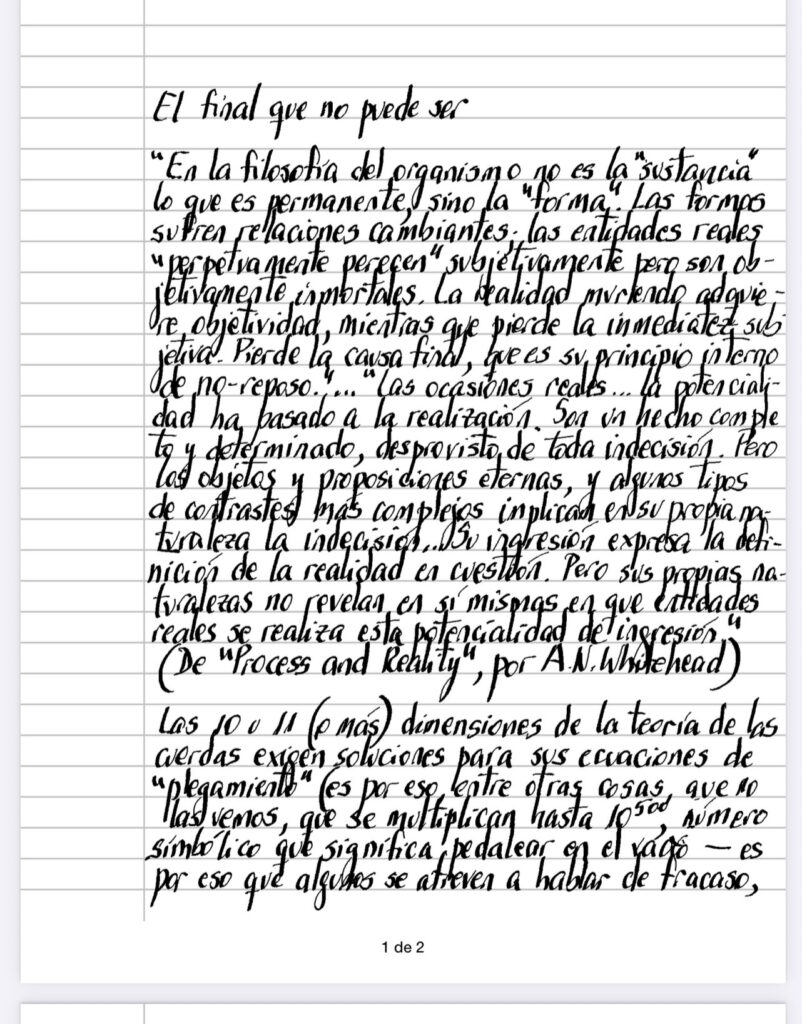 El final que no puede ser
"En la filosofía del organismo no es la "sustancia"
lo que es permanente, sino la "forma". Las formas
sufren relaciones cambiantes; las entidades reales
"perpetuamente perecen" subjetivamente pero son ob-
jetivamente inmortales. La realidad muriendo adquie-
re objetividad, mientras que pierde la inmediatez sub
jetiva. Pierde la causa final, que es su principio interno
de no-reposo."... "Las ocasiones reales... la potenciali-
dad ha pasado a la realización. Son un hecho comple
to y determinado, desprovisto de toda indecisión. Pero
los objetos y proposiciones eternas, y algunos tipos
de contrastes más complejos implican en su propia na-
turaleza la indecisión... Su ingresión expresa la defi-
nición de la realidad en cuestión. Pero sus propias na-
turalezas no revelan en sí mismas en que entidades
reales se realiza esta potencialidad de ingresión."
(De "Process and Reality", por A.N. Whitehead)
Las 10 u 11 (o más) dimensiones de la teoría de las
cuerdas exigen soluciones para sus ecuaciones de
"plegamiento" (es por eso, entre otras cosas, que no
las vemos, que se multiplican hasta 10⁵⁰⁰, número
simbólico que significa pedalear en el vacío — es
por eso que algunos se atreven a hablar de fracaso,
1 de 2